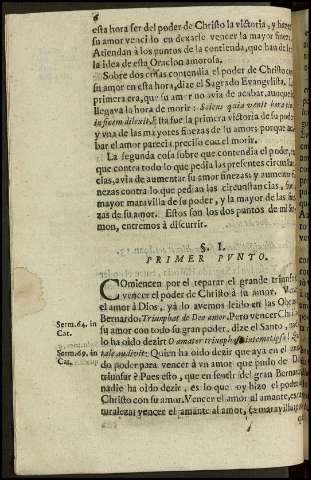 6
esta hora ser del poder de Christo la victoria, y hazer
su amor vencido en dexarse vencer la mayor fineza.
Atiendan à los puntos de la contienda, que han de ser
la idea de esta Oracion amorosa.
Sobre dos cosas contendia el poder de Christo con
su amor en esta hora, dize el Sagrado Evangelista. La
primera era, que su amor no avia de acabar, aunque
llegava la hora de morir: Sciens quia venit hora
in finem dilexit. Esta fue la primera victoria de su poder
y vna de las mayores finezas de su amor; porque aca-
bar el amor parecia preciso con el morir.
La segunda cosa sobre que contendia el poder,
que contra todo lo que pedia las presentes circunstan-
cias, avia de aumentar su amor finezas; y aumentar fi-
nezas contra lo que pedian las circunstancias, fue la
mayor maravilla de su poder, y la mayor de las fine-
zas de su amor. Estos son los dos puntos de mi Ser-
mon, entremos à discurrir.
§. I.
PRIMER PVNTO.
Comiencen por reparar el grande triunfo
vencer el poder de Christo à su amor. Vencer
el amor à Dios, ya lo avemos leido en las Obras
Bernardo: Triumphat de Deo amor. Pero vencer Christo
Serm.64. in
Cat.
su amor con todo su gran poder, dize el Santo,
lo ha oido dezir: O amator triumphas
Serm.69. in
Cat.
tale audivit: Quien ha oido dezir que aya en el
do poder para vencer à vn amor que pudo de Dios
triunfar? Pues esto, que en sentir del gran Bernardo
nadie ha oido dezir, es lo que oy hizo el poder
Christo con su amor. Vencer el amor al amante, es
naturaleza; vencer el amante al amor, es maravilloso